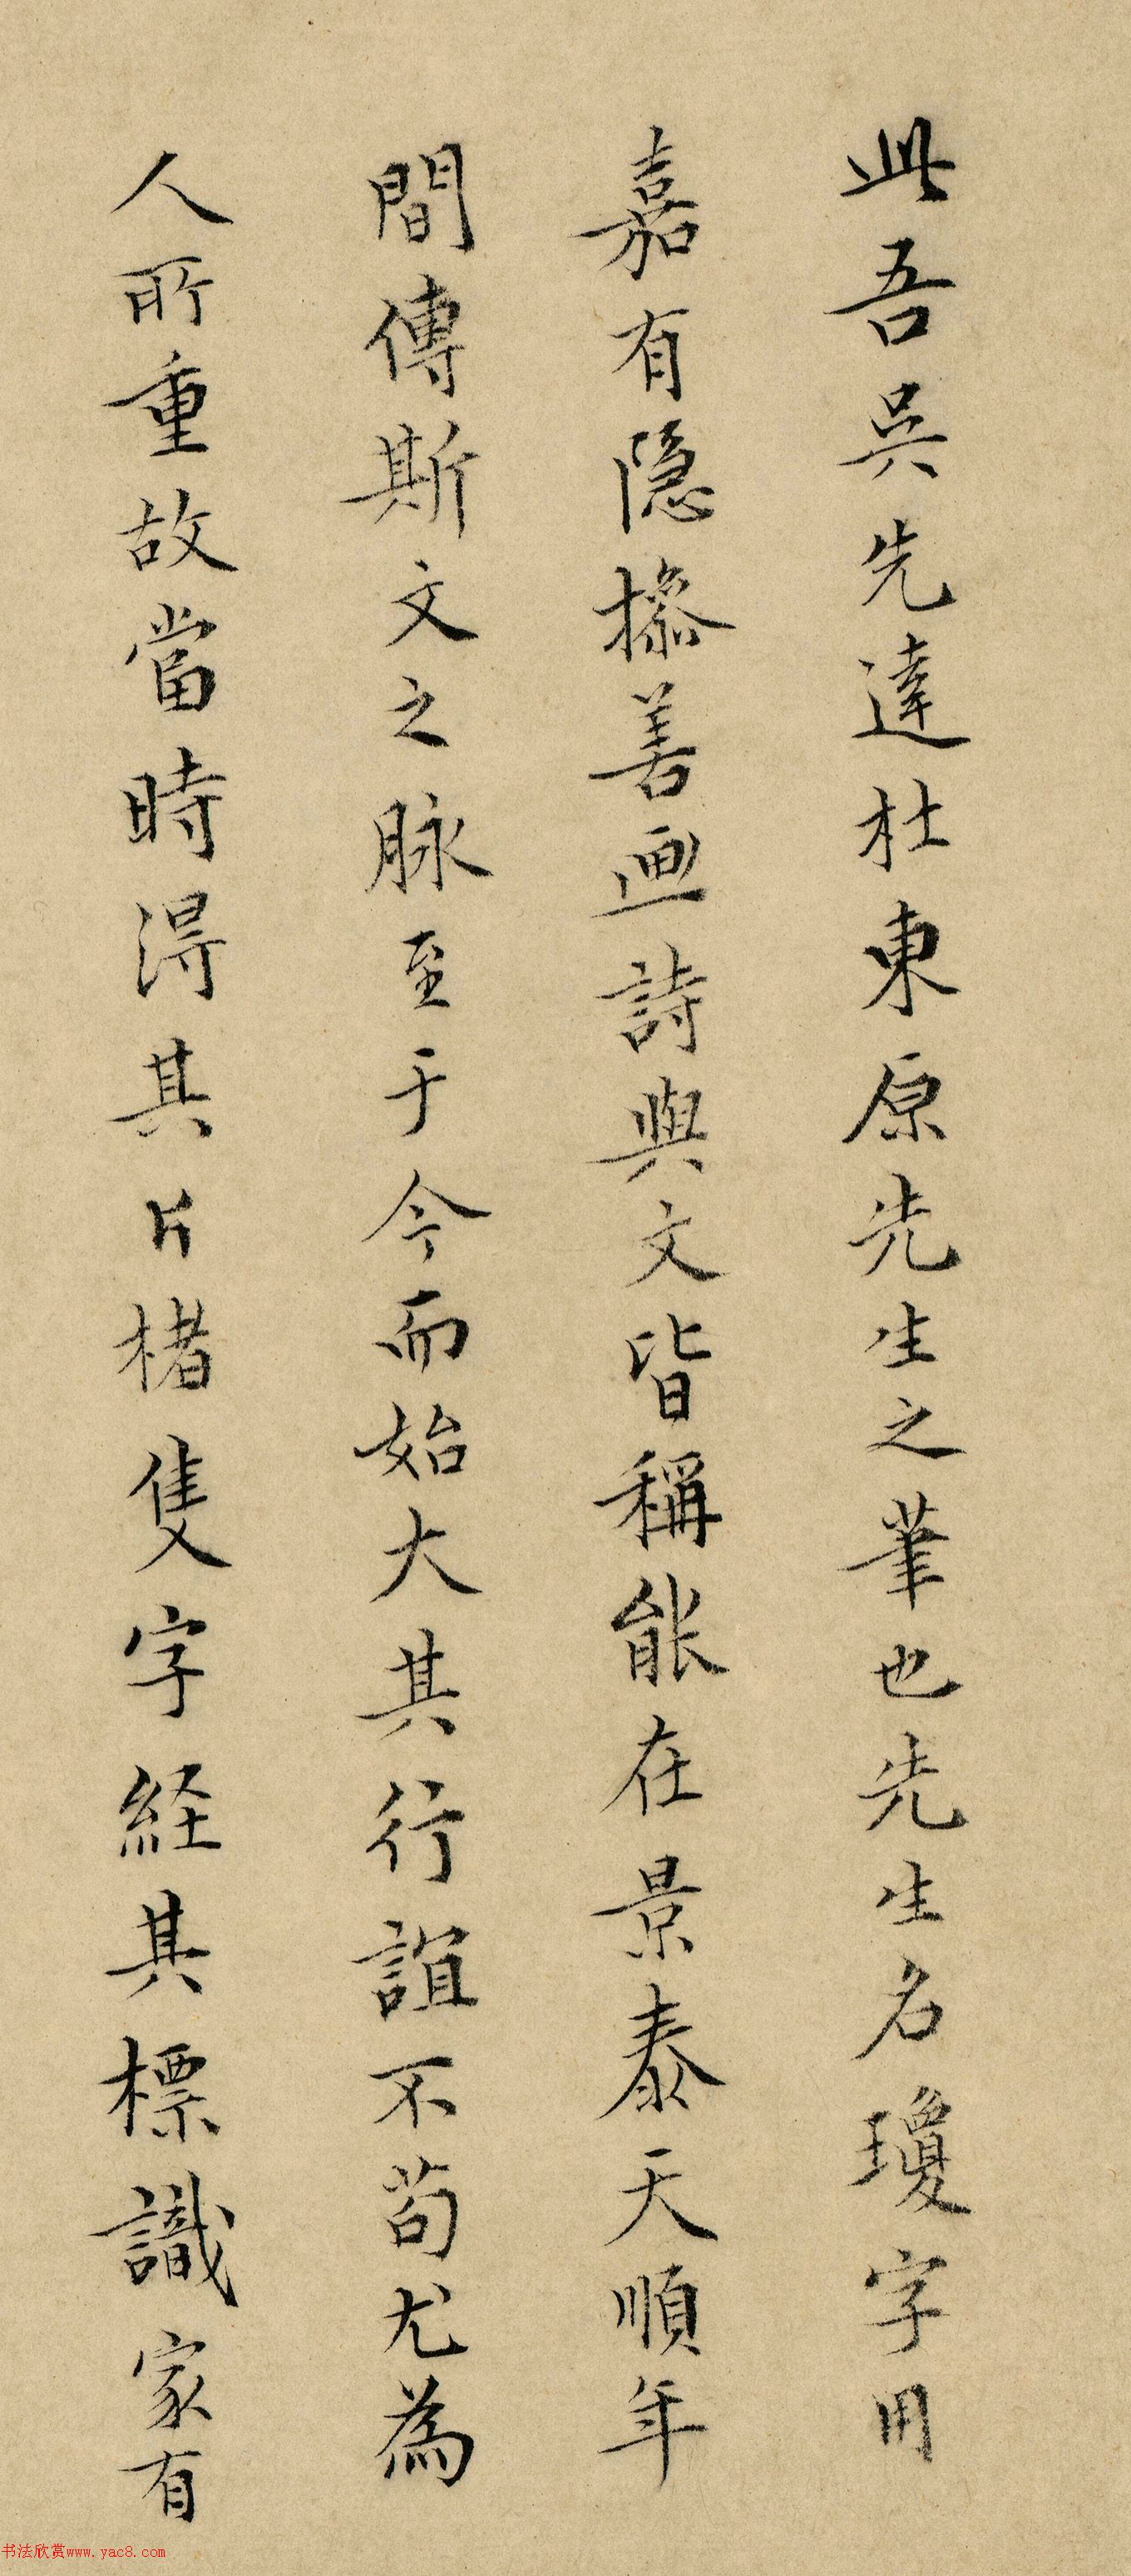 此吾吳先達杜東原先生之筆也先生名瓊字用
嘉有隱操善畫詩與文皆稱能在景泰天順年
間傳斯文之脉至于今而始大其行誼不苟尤為
人所重故當時得其片楮隻字經其標識家有
书法欣赏www.yac8.com